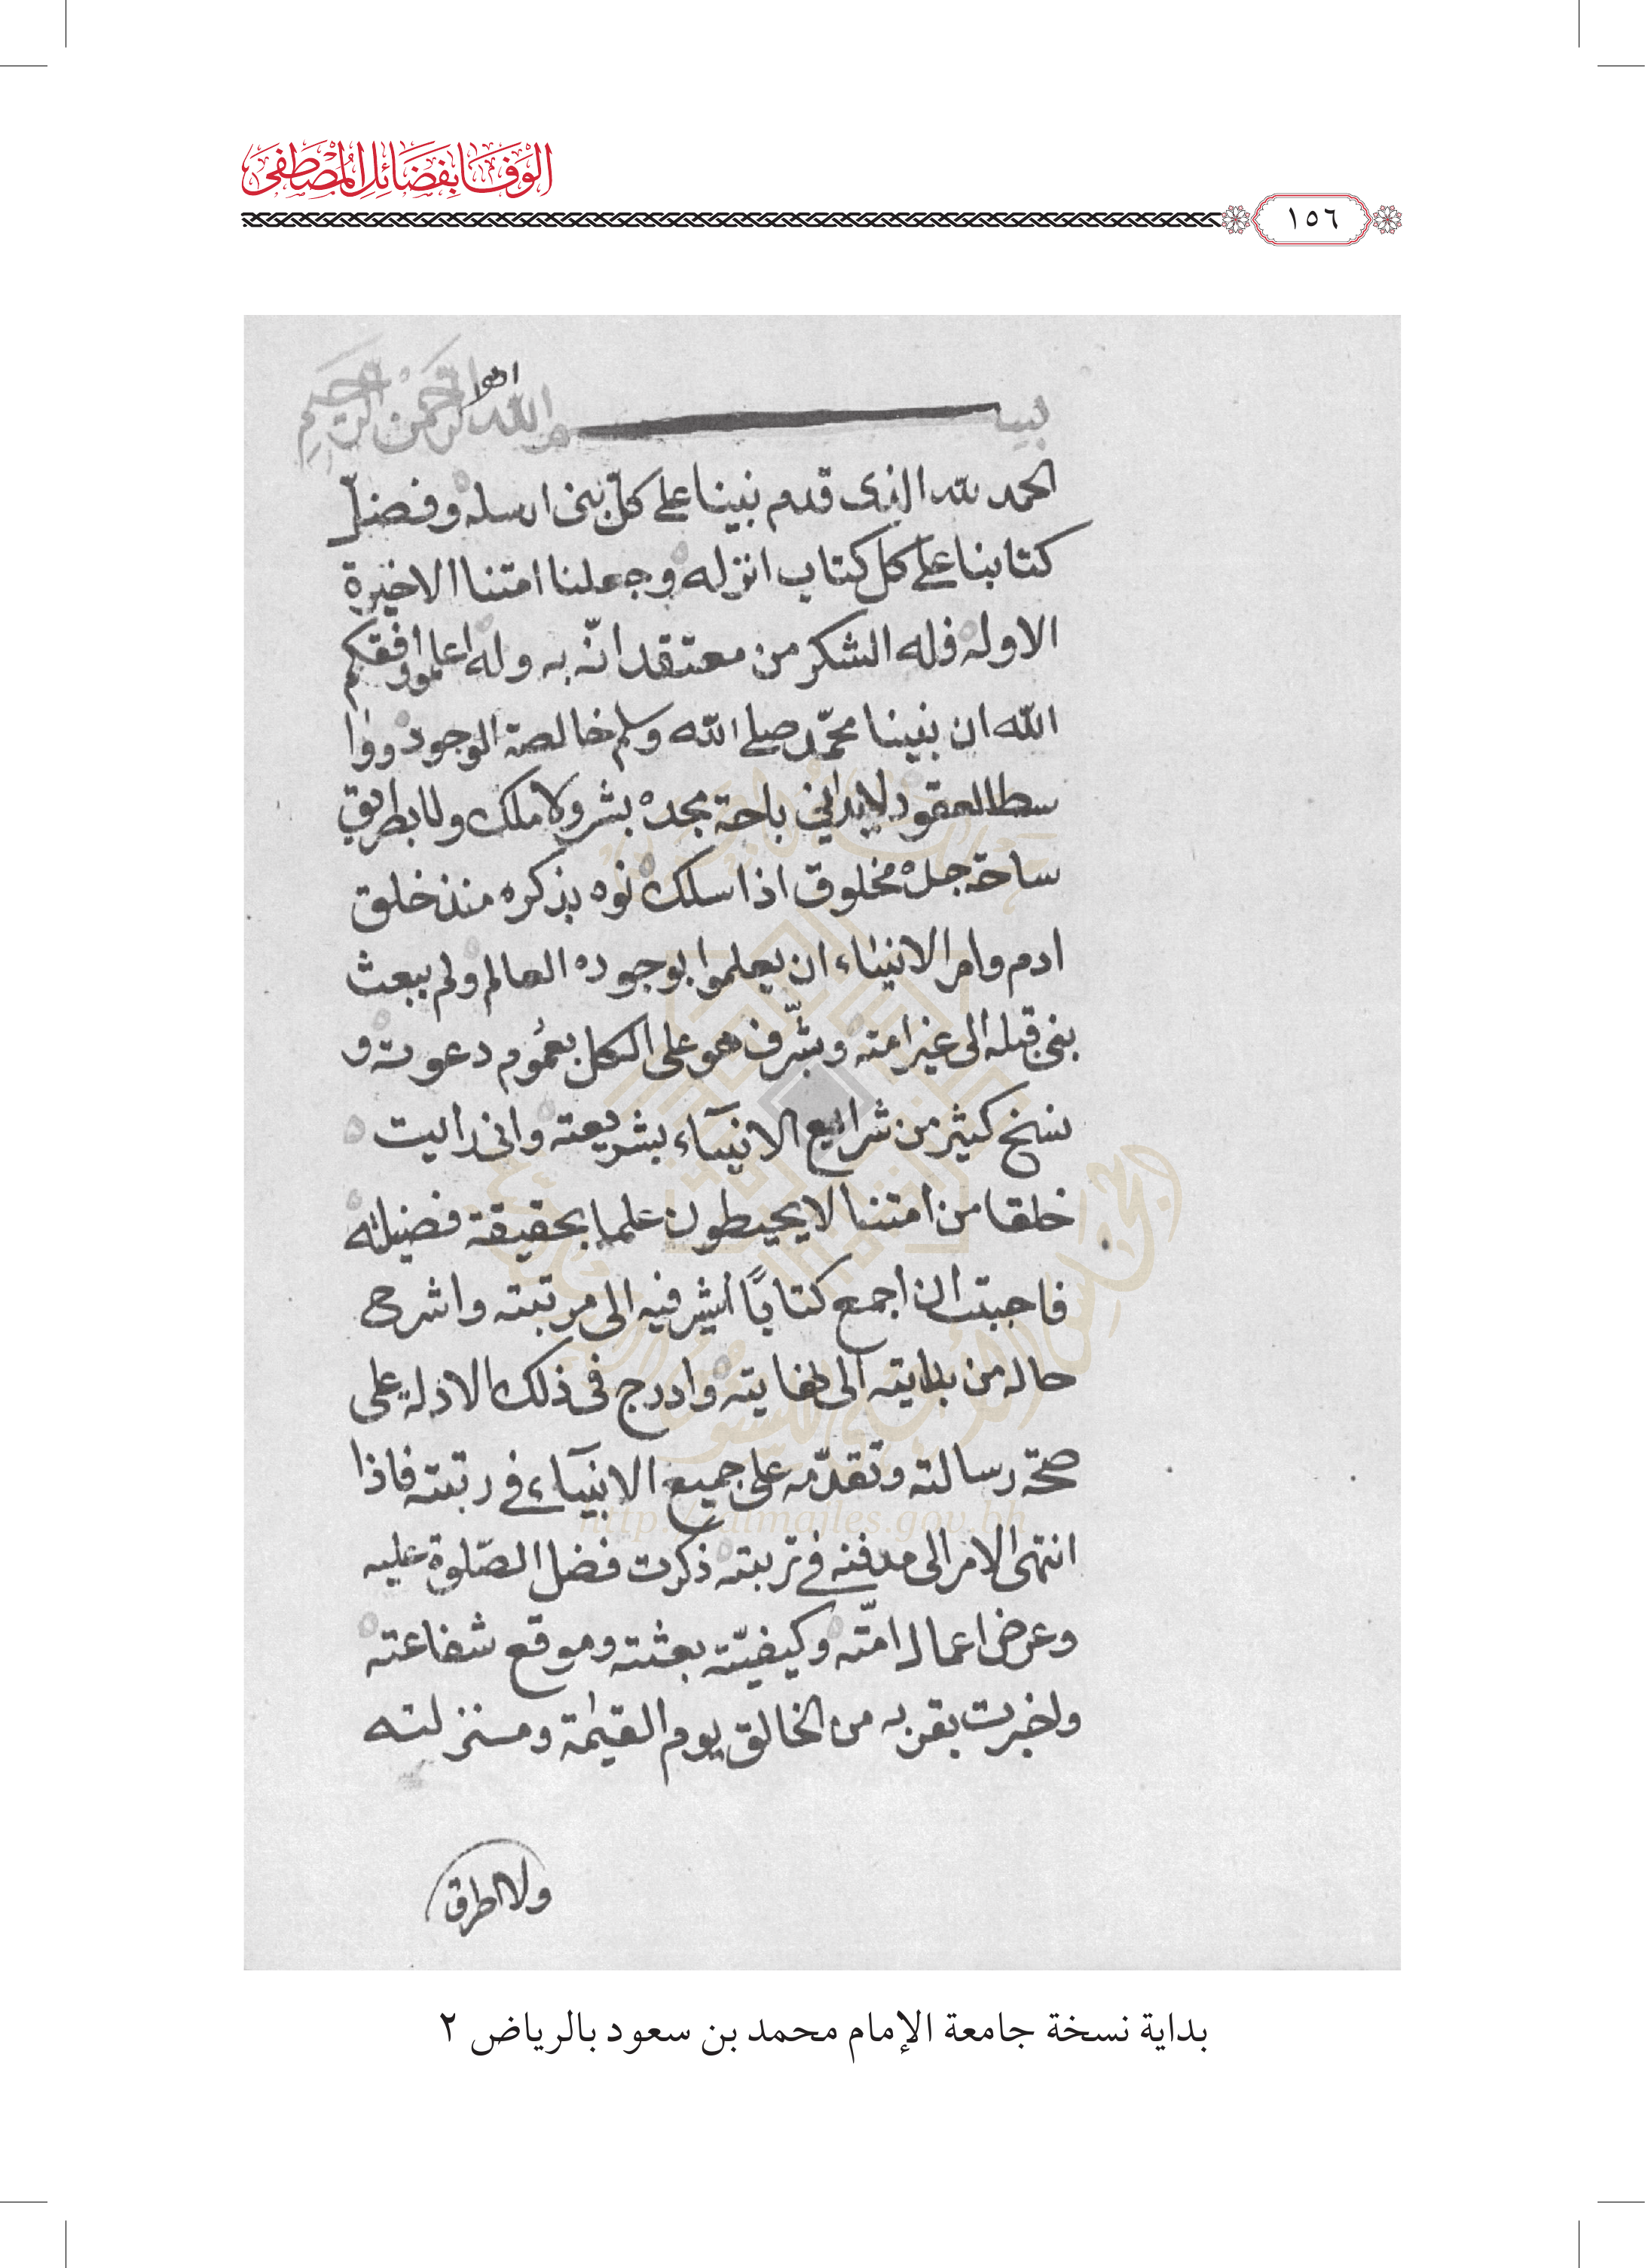 الوَفَا بِفَضَائِلِ المُصْطَفَى
١٥٦
بسم الله الرحمن الرحيم
الحمد لله الذى قدم نبينا على كل نبى ارسله وفضل
كتابنا على كل كتاب انزله وجعلنا امتنا الاخيرة
الاوله فله الشكر من معتقد انّه به وله اعلموا وفقكم
الله ان نبينا محمّد صلى الله وسلم خالصة الوجود ووا
سطا العقود لا يدانى باحة مجده بشر ولا ملك ولا بطريق
ساحة جده مخلوق اذا سلك نوه بذكره منذ خلق
ادم وامر الانبياء ان يعلموا بوجوده العالم ولم يبعث
نبى قبله الى غير امته وشرّف هو على الكل بعموم دعوته و
نسخ كثير من شرايع الانبيآء بشريعته وانى رايت
خلقا من امتنا لا يحيطون علما بحقيقة فضيلته
فاحببت ان اجمع كتابًا اشير فيه الى مرتبته واشرح
حاله من بدايته الى نهايته وادرج فى ذلك الادلة على
صحة رسالته وتقدّمه على جميع الانبيآء فى رتبته فاذا
انتهى الامر الى مدفنه فى تربته ذكرت فضل الصّلوة عليه
وعرض اعمال امّته وكيفيّته بعثته وموقع شفاعته
واخبرت بقربه من الخالق يوم القيمة ومنزلته
ولا اطرق
http://almajles.gov.bh
بداية نسخة جامعة الإمام محمد بن سعود بالرياض ٢